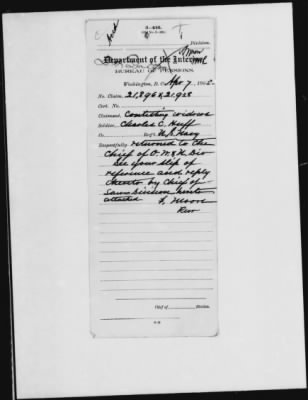 3-416.
T
Division
Department of the Interior
BUREAU OF PENSIONS
Washington, D.C. Apr 7, 1902.
No. Claim, 21,896 & 21,928
Cert. No.
Claimant, Contesting widows
Soldier, Charles C. Huff
Co. Reg't U.S. Navy
Respectfully returned to the
Chief of O.W. & N. Div
See your slip of
reference and reply
thereto by Chief of
Law Division hereto
attached
F. Moore
Rev
Chief of Division.